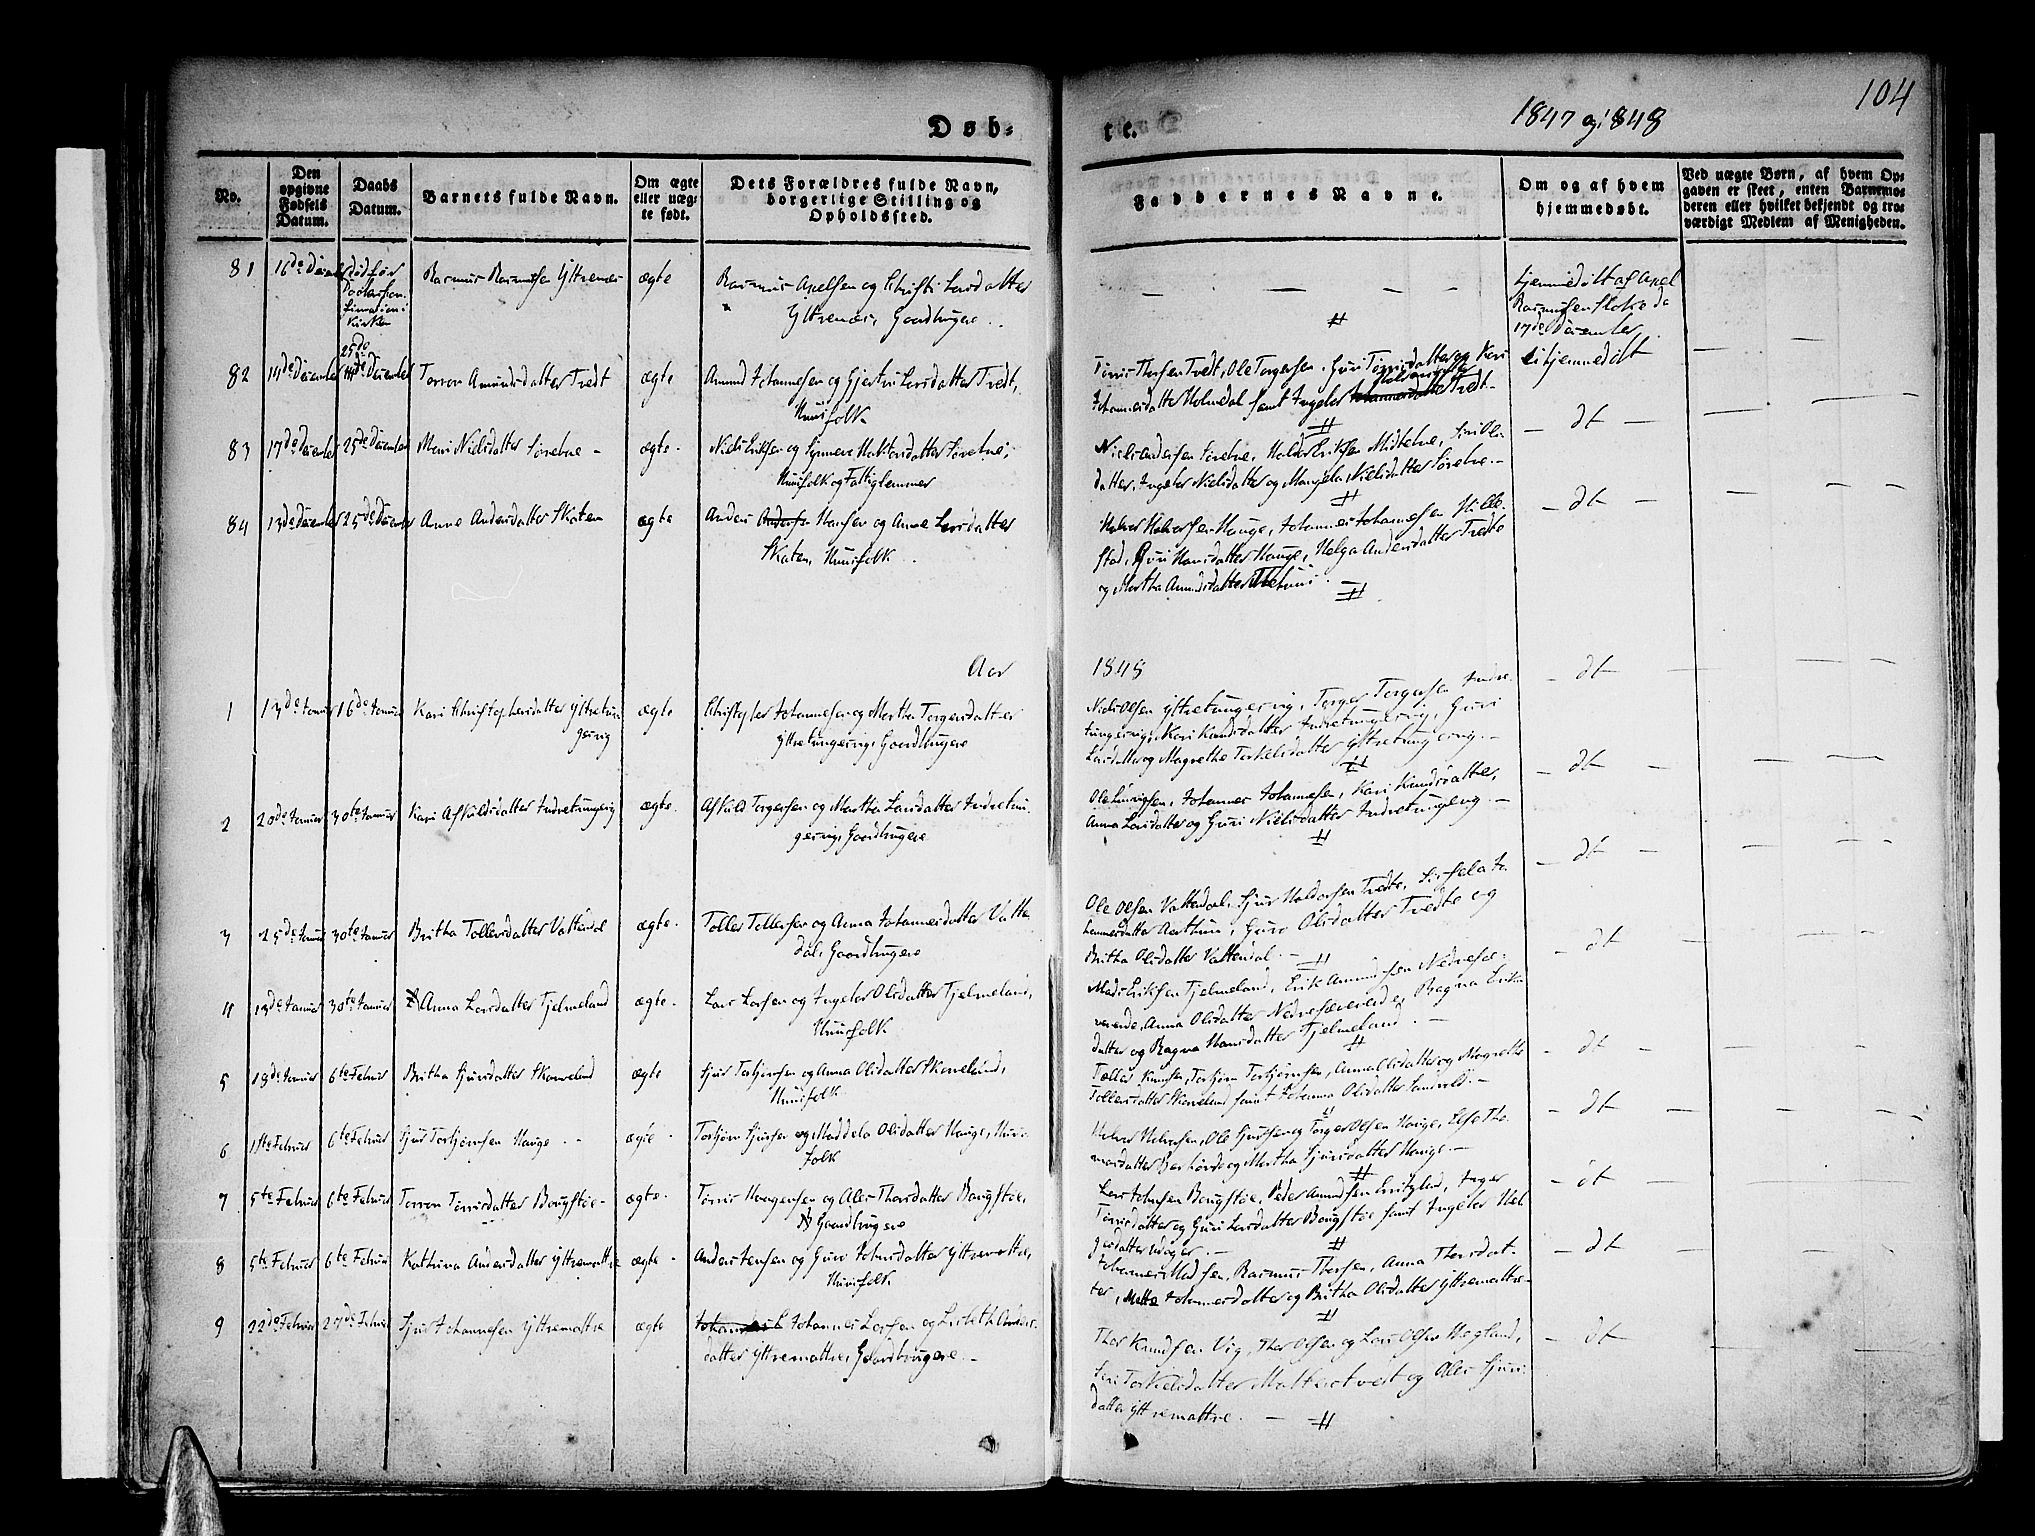 104
1847 og 1848
Døb-
te.
No.
Den opgivne Fødsels Datum.
Daabs Datum.
Barnets fulde Navn.
Om ægte eller uægte født.
Dets Forældres fulde Navn, borgerlige Stilling og Opholdssted.
Faddernes Navne.
Om og af hvem hjemmedøbt.
Ved uægte Børn, af hvem Opgaven er skeet, enten Barnemoderen eller hvilket bekjendt og troværdigt Medlem af Menigheden.
81 16de December død før
i Kirken
Rasmus Rasmusen Yttrenæs ægte Rasmus Axelsen og Christi Larsdatter
Yttrenæs, Gaardbrugere
hjemmedøbt af Axel
Rasmusen Stokke da
17de December
82 14de December 25de December Torron Amundsdatter Tvedt ægte Amund Johannesen og Gjertru Larsdatter Tvedt,
Huusfolk
Tørris Thorsen Tvedt, Ole Torgersen, Guri Tørrisdatter og Kari
Johannesdatter Holmedal samt Ingeler Tvedt
ei hjemmedøbt
83 17de December 25de December Mari Nielsdatter Sørebøe ægte Niels Eriksen og Synneve Sørebøe,
Huusfolk og Fattiglemmer
Niels Andersen Sørebøe, Haldor Eriksen Midtebøe, Siri Ols-
datter, Ingeler Nielsdatter og Mangela Nielsdatter Sørebøe
dt
84 13de December 25de December Anne Andersdatter Skaten ægte Anders Hansen og Anne Larsdatter
Skaten, Huusfolk
Halvor Halvorsen Hauge, Johannes Johannesen Hille-
stad, Guri Hansdatter Hauge, Helga Andersdatter Tvedte
og Martha Amundsdatter
dt
Aar 1848
1 13de Januar 16de Januar Kari Christophersdatter Yttretun-
gesvig ægte Christopher Johannesen og Martha Torgersdatter
Yttretungesvig, Gaardbrugere
Niels Olsen Yttretungesvig, Torger Torgersen Indre-
tungesvig, Kari Knudsdatter Indretungesvig, Guri
Larsdatter og Magrethe Torkelsdatter Yttretungesvig
dt
2 20de Januar 30te Januar Kari Askuldsdatter Indretungesvig ægte Askuld Torgersen og Martha Larsdatter Indretun-
gesvig, Gaardbrugere
Ole Johannes Johannesen, Kari Knudsdatter,
Anna Larsdatter og Guri Nielsdatter Indretungesvig
dt
3 25de Januar 30te Januar Britha Tollersdatter Vattendal ægte Toller Tollersen og Anna Johannesdatter Vatten-
dal, Gaardbrugere
Ole Olsen Vattendal, Sjur Haldorsen Tvedte, Sissela Jo-
hannesdatter Aarthun, Guro Olsdatter Tvedte og
Britha Olsdatter Vattendal
dt
4 13de Januar 30te Januar Anna Larsdatter Tjelmeland ægte Lars Larsen og Ingeler Olsdatter Tjelmeland,
Huusfolk
Mads Eriksen Tjelmeland, Erik Amundsen Nedresæ-
verende, Anna Olsdatter Nedresæverende, Ragna Eriks-
datter og Ragna Hansdatter Tjelmeland
dt
5 18de Januar 6te Februar Britha Sjursdatter Skorveland ægte Sjur Torbjørnsen og Anna Olsdatter Skorveland,
Huusfolk
Toller Knudsen, Torbjørn Torbjørnsen, Anna Olsdatter og Magrethe
Tollersdatter Skorveland samt Johanna Olsdatter Sandvold
dt
6 1ste Februar 6te Februar Sjur Torbjørnsen Hauge ægte Torbjørn Sjursen og Maddela Olsdatter Hauge, Huus-
folk
Halvor Halvorsen, Ole Sjursen og Torger Olsen Hauge, Else Tho-
masdatter og Martha Sjursdatter Hauge
dt
7 5te Februar 6te Februar Torron Tørrisdatter Bougstøe ægte Tørris Haagensen og Ales Thorsdatter Bougstøe,
Gaardbrugere
Lars Johnsen Bougstøe, Peder Amundsen Inger
Tørrisdatter og Guri Larsdatter Bougstøe samt Ingeler Hel-
gesdatter
dt
8 5te Februar 6te Februar Kathrina Andersdatter Yttrematre ægte Anders Jensen og Guro Johnsdatter Yttrematre,
Huusfolk
Johannes Madsen, Rasmus Thorsen, Anna Thorsdat-
ter, Mette Johannesdatter og Britha Olsdatter Yttrematre
dt
9 22de Februar 27de Februar Sjur Johannesen Yttrematre ægte Johannes Larsen og Lisbeth Anders-
datter Yttrematre, Gaardbrugere
Thor Knudsen Vig, Thor Olsen og Lars Olsen Hogland,
Siri Torkelsdatter og Ales Sjurs-
datter Yttrematre
dt